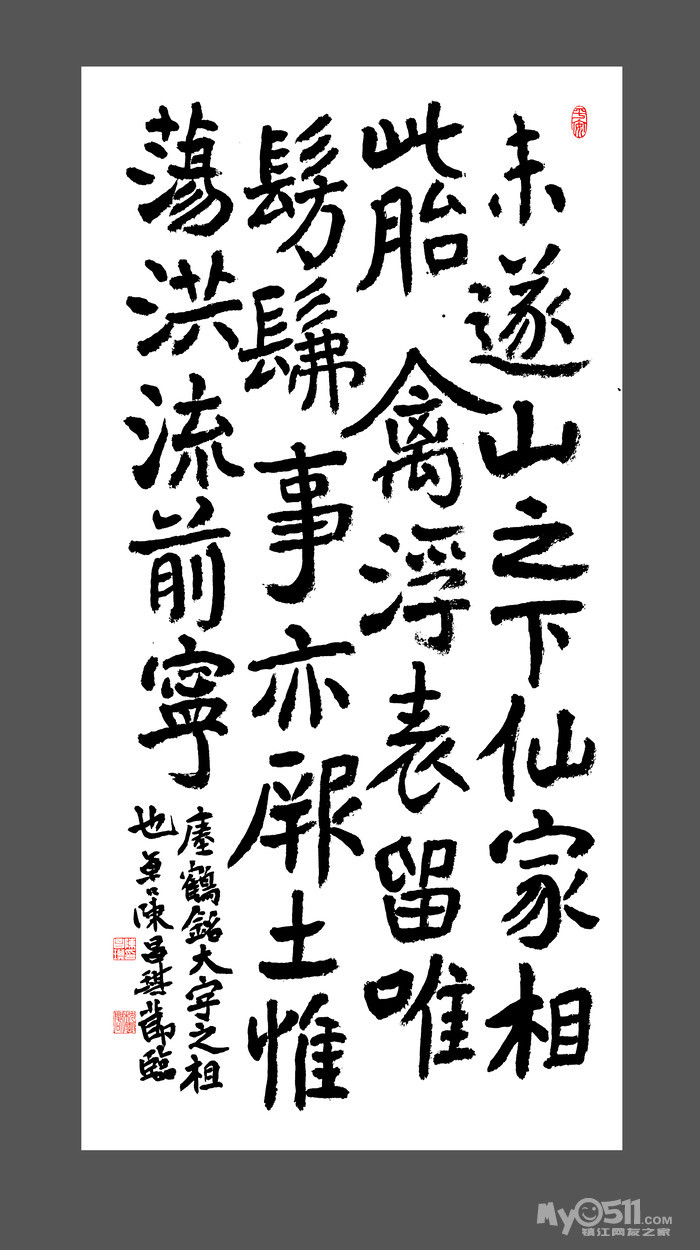 未遂山之下仙家相
此胎禽浮表留唯
髣髴事亦厥土惟
蕩洪流前寧
瘞鶴銘大字之祖
也 陳 節臨
My0511.COM
镇江网友之家